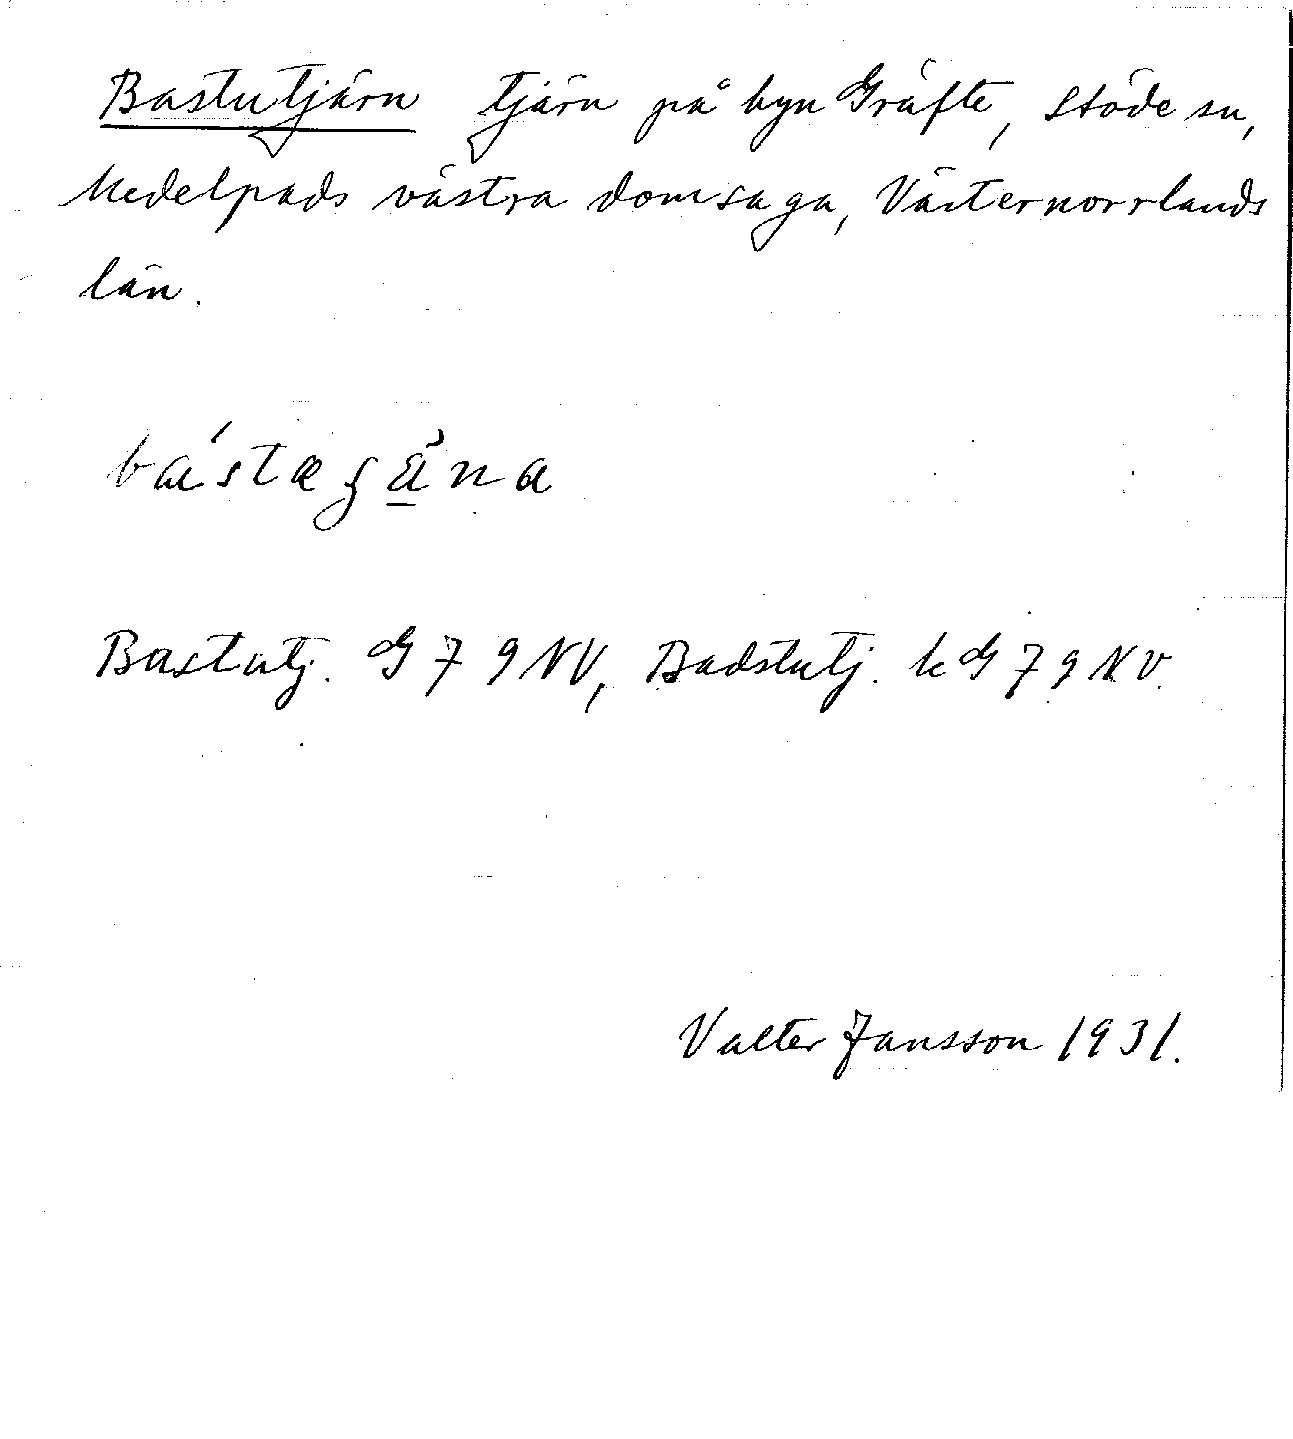 Bastutjärn tjärn på byn Gräfte, Stöde sn,
Medelpads västra domsaga, Västernorrlands
län.
Bastutj. G 7 9 NV, Badstutj. k G 7 9 N V.
Valter Jansson 1931.